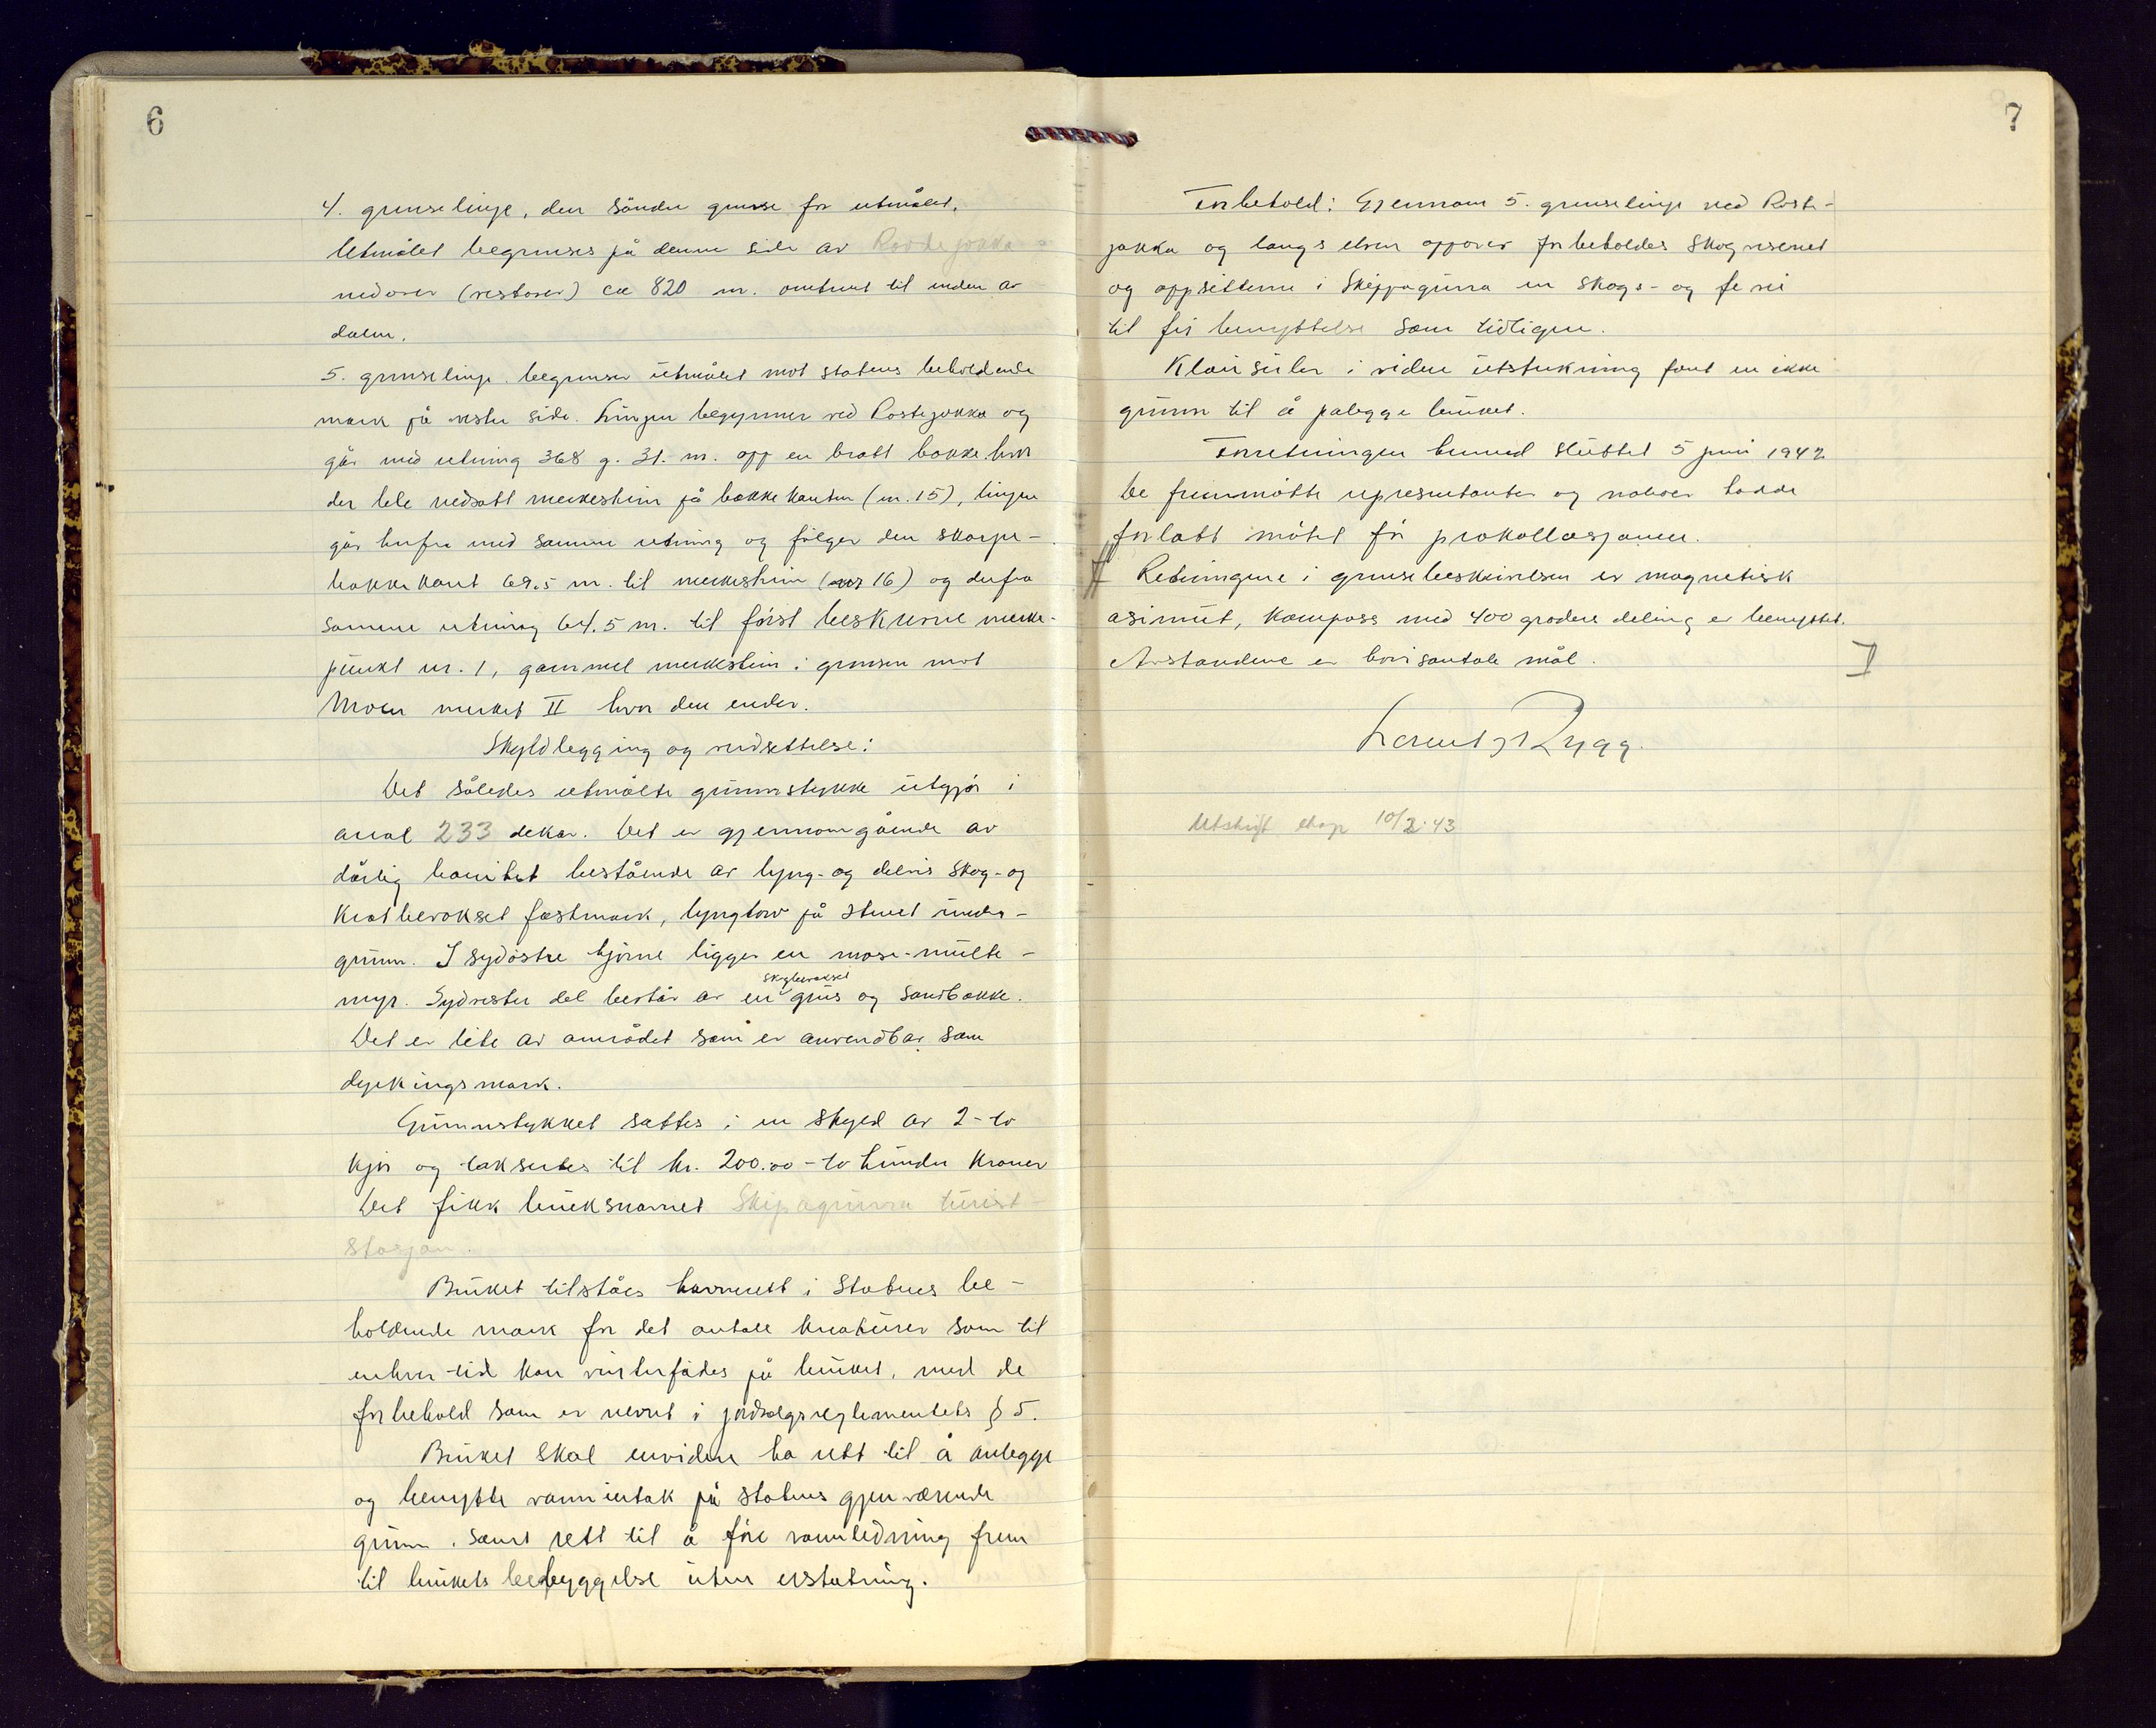 6
4. grenselinje, den söndre grense for utmålet.
Utmålet begrenses på denne side av Rostejokka
nedover (vestover) ca 820 m. omtrent til enden av
dalen.
5. grenselinje. begrenser utmålet mot statens beholdende
mark på vestre side. Linjen begynner ved Rostejokka og
går med retning 368 g. 31. m. opp en bratt bakke hvor
der ble nedsatt merkestein på bakkekanten (nr. 15), linjen
går herfra med samme retning og fölger den skarpe-
bakkekant 69.5 m. til merkestein (nr 16) og derfra
samme retning 64.5 m. til först beskrevne merke-
punkt nr. 1, gammel merkestein i grensen mot
Moen merket II hvor den ender.
Skyldlegging og verdsettelse:
Det således utmålte grunnstykke utgjör i
areal 233 dekar. Det er gjennomgående av
dårlig bonitet bestående av lyng- og delvis skog- og
kratbevokset fastmark, lyngtorv på stenet under-
grunn. I sydöstre hjörne ligger en mose-multe-
myr. Sydvestre del består av en skogbevokset grus og sandbakke.
Det er lite av området som er anvendbar som
dyrkingsmark.
Grunnstykket sattes i en skyld av 2 - to
kjör og takseres til kr. 200.00 - to hundre kroner
Det fikk bruksnavnet Skipagurra turist
stasjon.
Bruket tilståes havnerett i Statens be-
holdende mark for det antall kreaturer som til
enhver tid kan vinterfödes på bruket, med de
forbehold som er nevnt i jordsalgsreglementets § 5.
Bruket skal envidere ha rett til å anlegge
og benytte vanninntak på statens gjenværende
grunn. samt rett til å före vannledning frem
til brukets bebyggelse uten erstatning.
7
Forbehold: Gjennom 5. grenselinje ved Roste-
jokka og langs elven oppover forbeholdes skogvesenet
og oppsitterne i Skippagurra en skogs- og fevei
til fri benyttelse som tidligere.
Klausuler i videre utstrekning fant en ikke
grunn til å pålegge bruket.
Forretningen hermed sluttet 5 juni 1942
De fremmötte representanter og naboer hadde
forlatt mötet för protokollasjonen.
Retningene i grensebeskrivelsen er magnetisk
asimut, kompass med 400 graders deling er benyttet.
Avstandene er horisontale mål.
Lorentz Rygg.
Utskrift 10/2.43